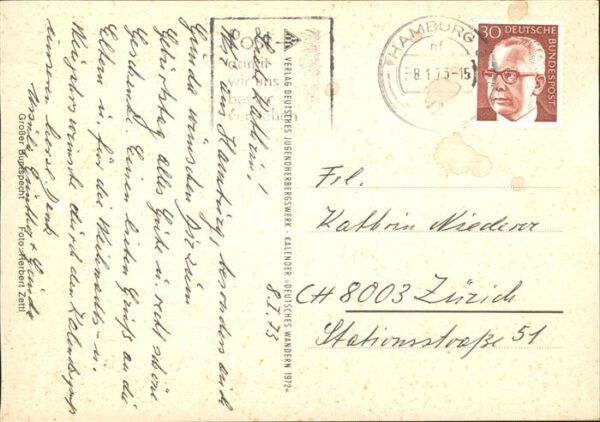 Liebe Kathrin!
Wir aus Hamburg, besonders auch
Gunda wünschen Dir zum
Geburtstag alles Gute u. recht schöne
Geschenke. Einen lieben Gruß an die
Eltern u. für die Weihnachts- u.
Neujahrswünsche durch den Kalendergruß
unseren Dank
Günther + Gunda
8.I.73
Großer Buntspecht Foto: Herbert Zettl
VERLAG DEUTSCHES JUGENDHERBERGSWERK · KALENDER »DEUTSCHES WANDERN 1972«
Post
damit
wir uns
besser
verstehen
HAMBURG
nf
-8.1.73-15
30 DEUTSCHE BUNDESPOST
Frl.
Kathrin Niederer
CH 8003 Zürich
Stationsstraße 51